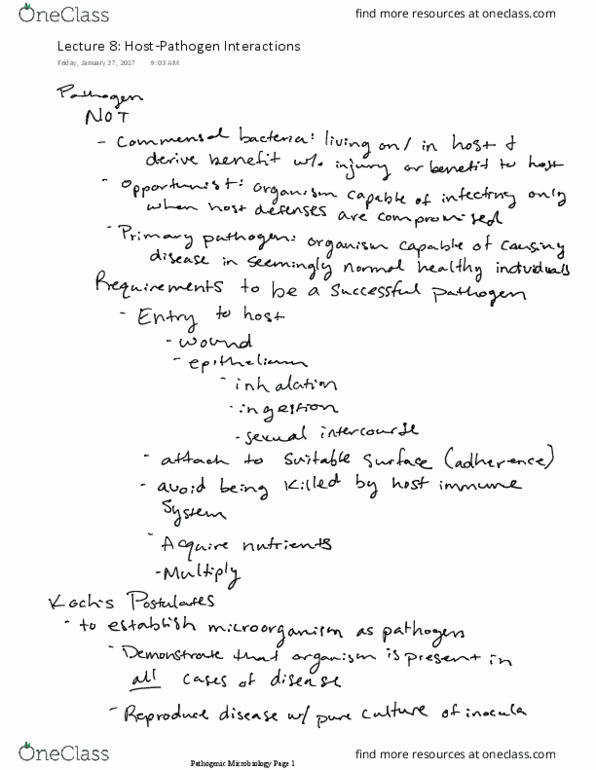 OneClass
find more resources at oneclass.com
Lecture 8: Host-Pathogen Interactions
Friday, January 27, 2017 9:03 AM
Pathogen
NOT
- Commensal bacteria: living on/in host &
derive benefit w/o injury or benefit to host
- Opportunist: organism capable of infecting only
when host defenses are compromised
- Primary pathogen: organism capable of causing
disease in seemingly normal healthy individuals
Requirements to be a successful pathogen
- Entry to host
- wound
- epithelium
- inhalation
- ingestion
- sexual intercourse
- attach to suitable surface (adherence)
- avoid being killed by host immune
system
- Acquire nutrients
- Multiply
Koch's Postulates
- to establish microorganism as pathogen
- Demonstrate that organism is present in
all cases of disease
- Reproduce disease w/ pure culture of inocula
OneClass
Pathogenic Microbiology Page 1
find more resources at oneclass.com